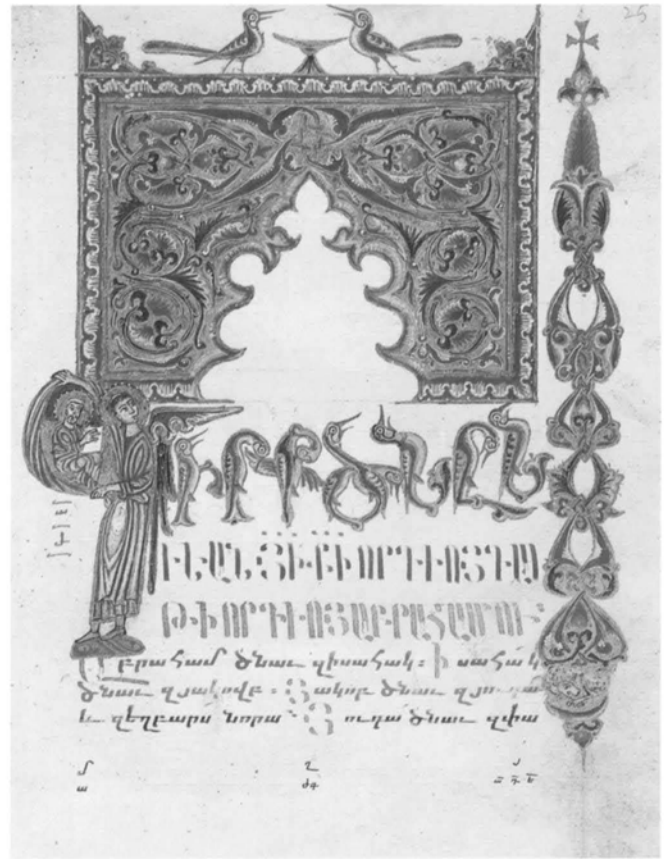 25
ԳԻՐՔ ԾՆԸՆ
ԴԵԱՆ ՅԻ ՔԻ ՈՐԴԻՈՅ ԴԱ
ԹԻ ՈՐԴԻՈՅ ԱԲՐԱՀԱՄՈՒ:
Աբրահամ ծնաւ զիսահակ: Իսահակ
ծնաւ զյակովբ: Յակոբ ծնաւ զյուդա
և զեղբարս նորա: Յուդա ծնաւ զփա